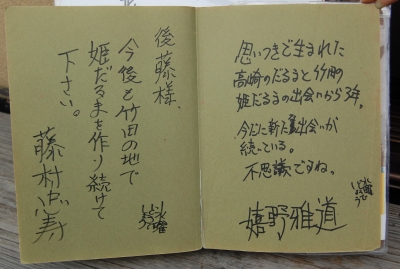 後藤様、
今後も竹田の地で
姫だるまを作り続けて
下さい。
藤村忠寿
水曜
思いつきで生まれた
高崎のだるまと竹田の
姫だるまの出会いから3年。
今だに新た出会いが
続いている。
不思議ですね。
嬉野雅道
水曜